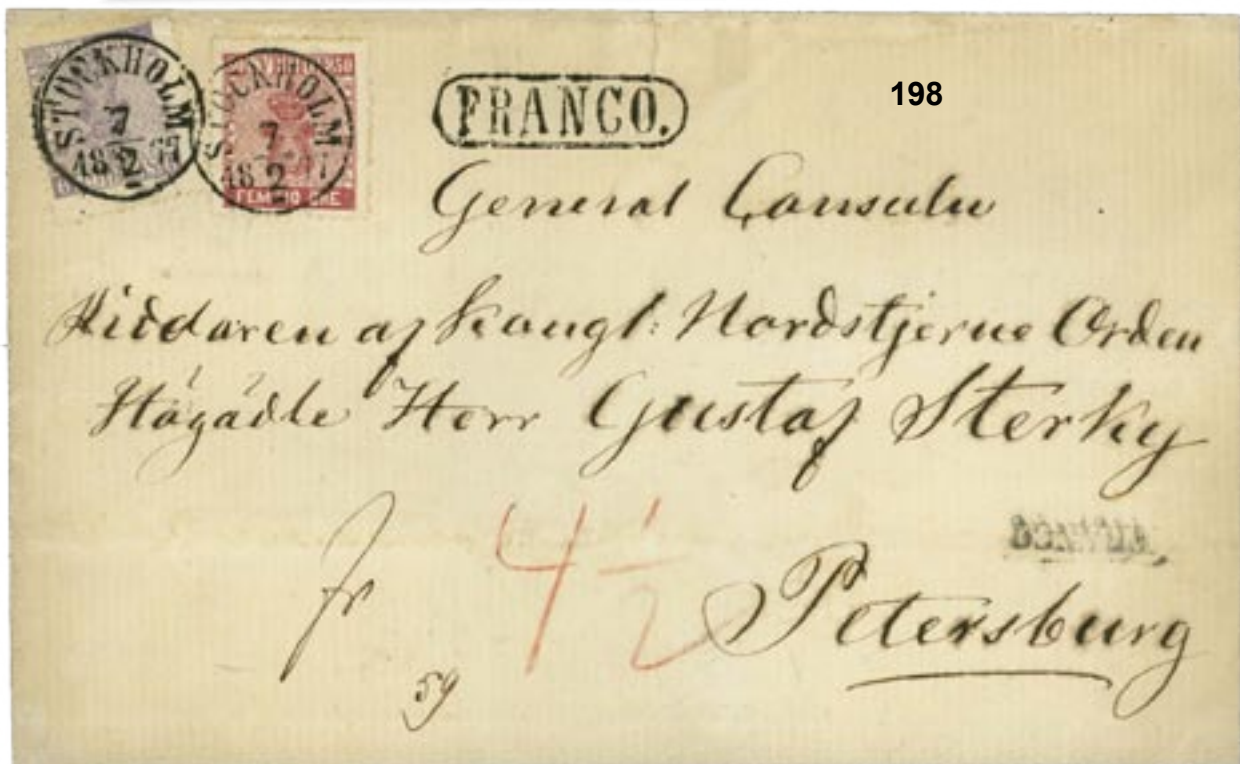 STOCKHOLM
7
18 2 77
STOCKHOLM
7
18 2 77
50
FEMTIO ÖRE
FRANCO.
198
General Consuln
Riddaren af Kongl: Nordstjerne Orden
Högädle Herr Gustaf Sterky
fr 4 1/2
Petersburg
59